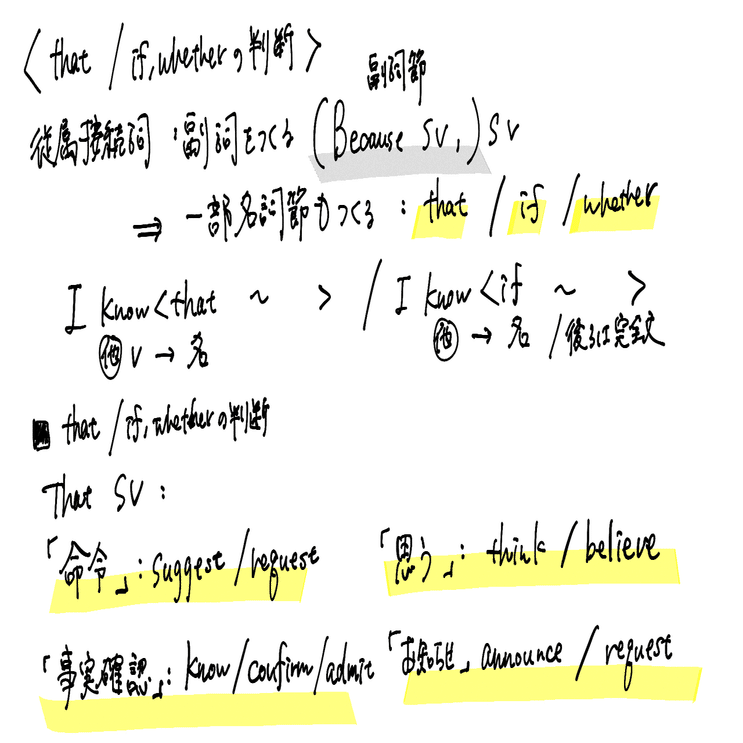 〈that / if, whetherの判断〉
副詞節
従属接続詞：副詞をつくる (Because SV,) SV
⇒ 一部名詞節もつくる：that / if / whether
I know <that ～ > / I know <if ～ >
㊀他 V → 名 ㊀他 → 名 / 後ろは完全文
■ that / if, whetherの判断
That SV :
「命令」: suggest / request 「思う」: think / believe
「事実確認」: know / confirm / admit 「お知らせ」 announce / request